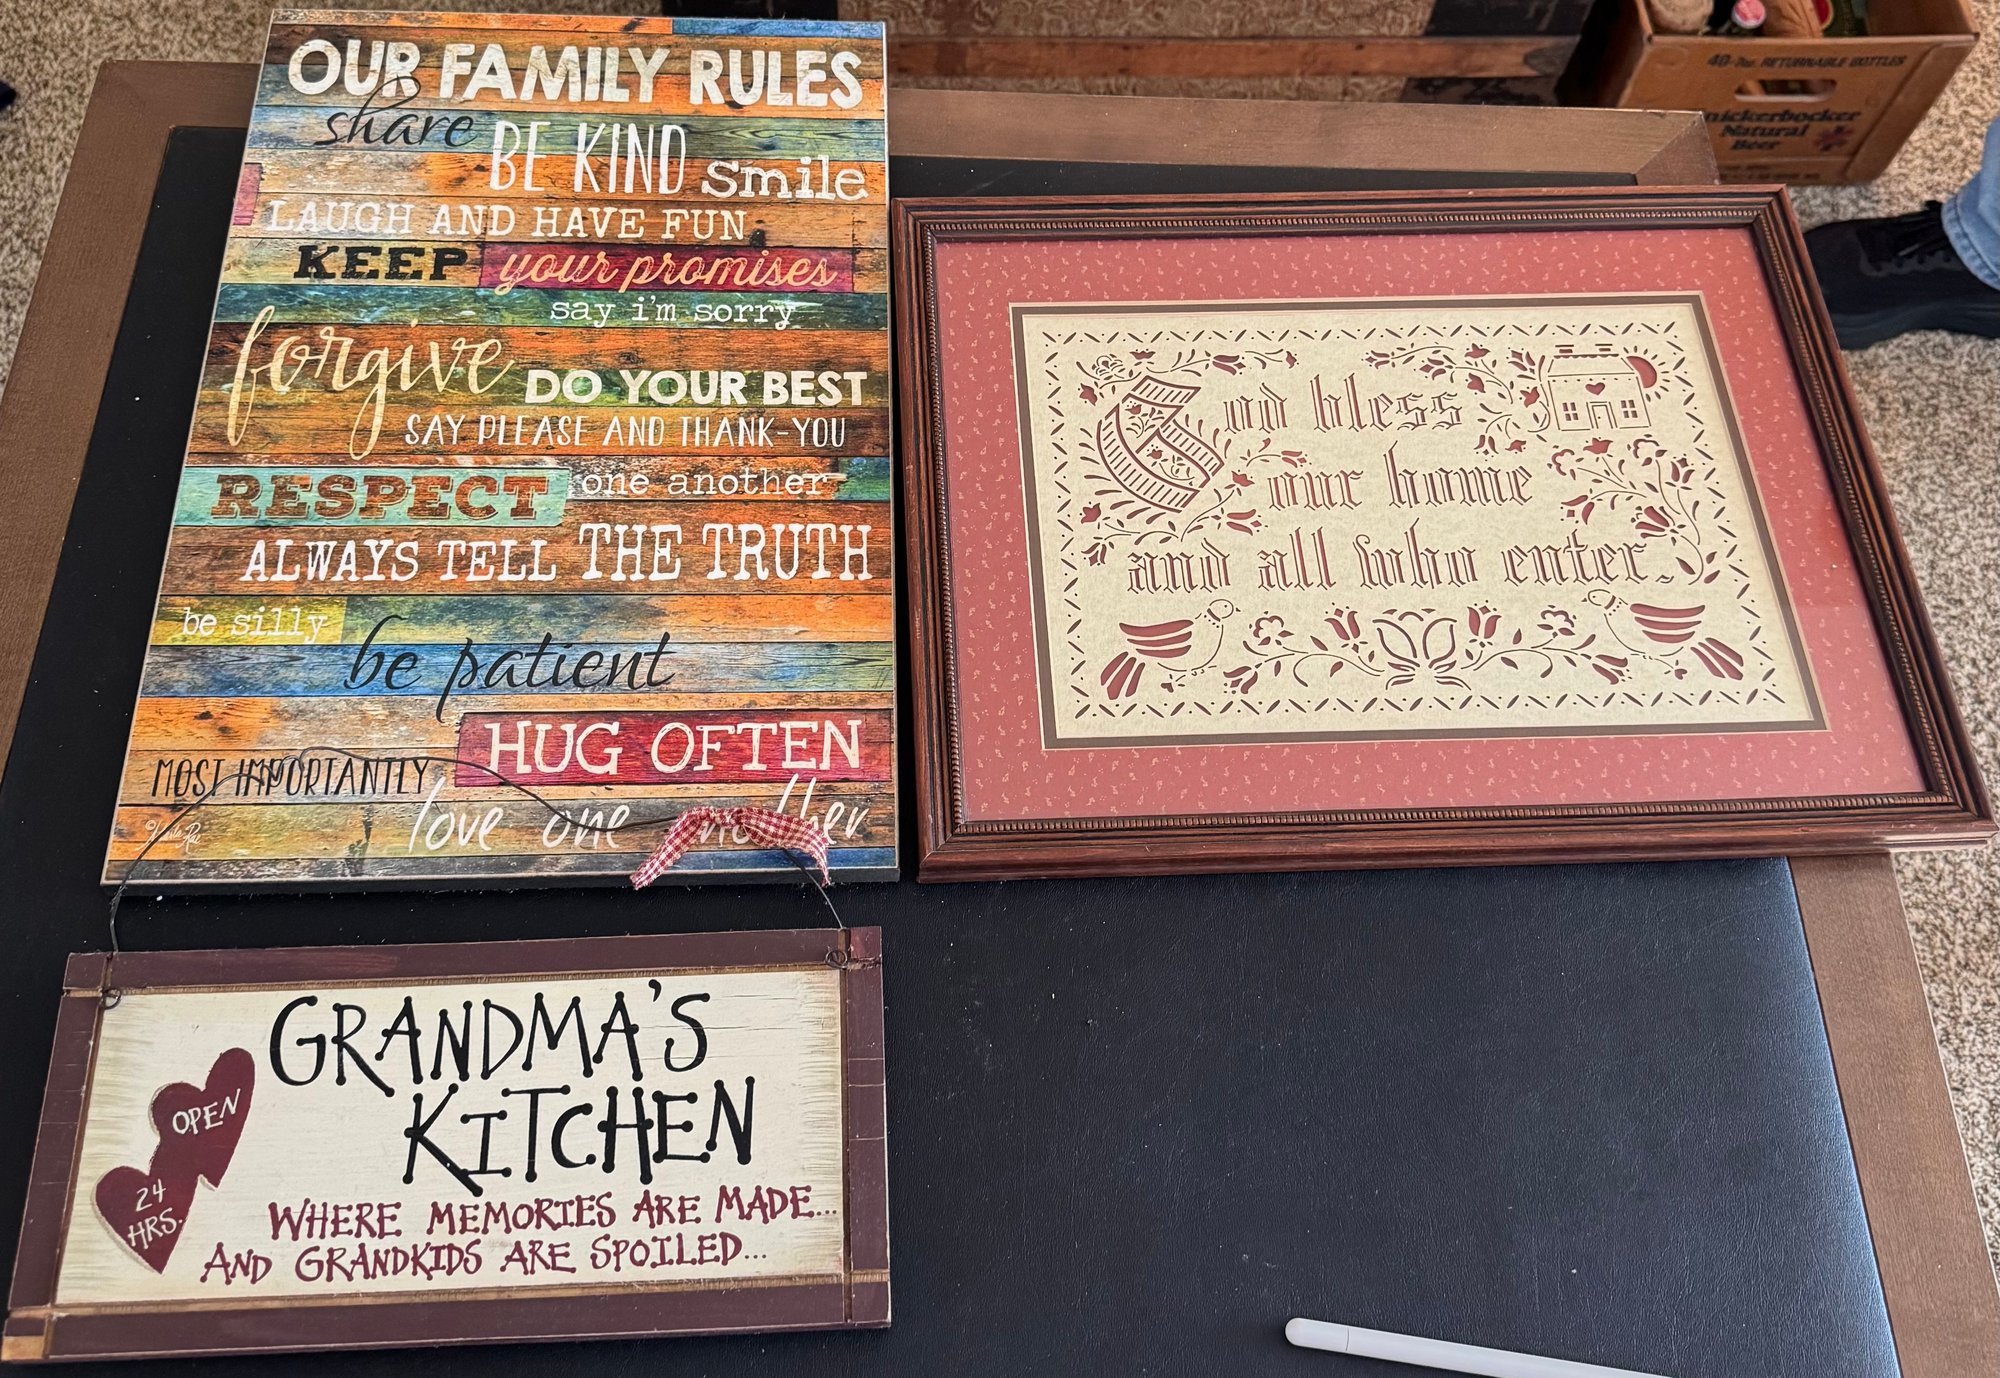 OUR FAMILY RULES
share BE KIND smile
LAUGH AND HAVE FUN
KEEP your promises
say i'm sorry
forgive DO YOUR BEST
SAY PLEASE AND THANK-YOU
RESPECT one another
ALWAYS TELL THE TRUTH
be silly
be patient
HUG OFTEN
MOST IMPORTANTLY
love one another
God bless
our home
and all who enter.
GRANDMA'S
KITCHEN
OPEN
24
HRS.
WHERE MEMORIES ARE MADE...
AND GRANDKIDS ARE SPOILED...
48-7oz. RETURNABLE BOTTLES
nickerbocker
Natural
Beer